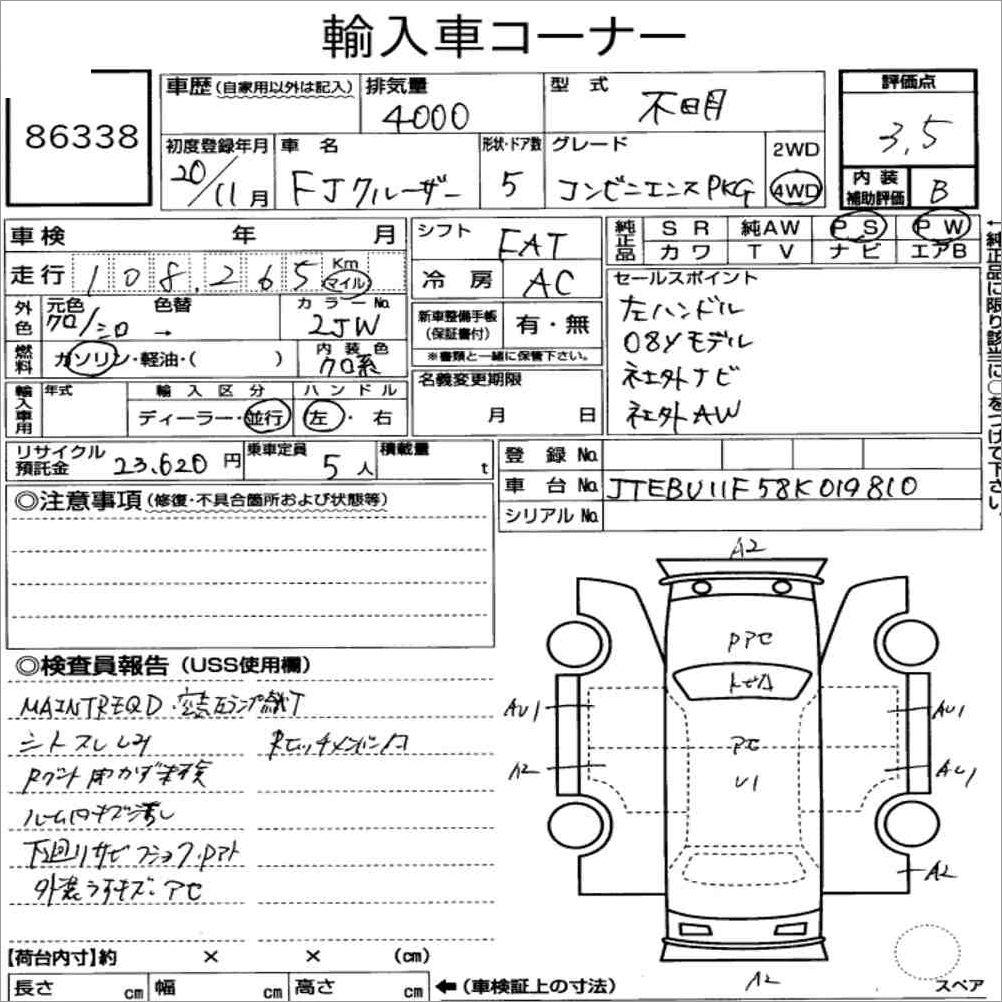 輸入車コーナー
86338
車歴(自家用以外は記入) 排気量 4000 型式 不明
評価点 3.5
初度登録年月 20/11月 車名 FJクルーザー 形状・ドア数 5 グレード コンビニエンスPKG 2WD 4WD
内装補助評価 B
車検 年 月
走行 108,265 Km マイル
外色 元色 クロ/シロ 色替 → カラーNo. 2JW
燃料 ガソリン・軽油・( ) 内装色 クロ系
輸入車用 年式 輸入区分 ディーラー・並行 ハンドル 左・右
シフト FAT
冷房 AC
新車整備手帳(保証書付) 有・無
※書類と一緒に保管下さい。
名義変更期限 月 日
純正品 SR 純AW PS PW
カワ TV ナビ エアB
←純正品に限り該当に○をつけて下さい。
セールスポイント
左ハンドル
08Yモデル
社外ナビ
社外AW
リサイクル預託金 23.620円 乗車定員 5人 積載量 t
登録No.
車台No. JTEBU11F58K019810
シリアルNo.
◎注意事項(修復・不具合箇所および状態等)
◎検査員報告(USS使用欄)
MAINTREQD
シートスレシミ
ルーム内キズ汚れ
下廻りサビ
外装うすキズ
A2
AU1
A2
U1
AU1
AU1
A2
A2
スペア
【荷台内寸】約 × × (cm)
長さ cm 幅 cm 高さ cm ←(車検証上の寸法)